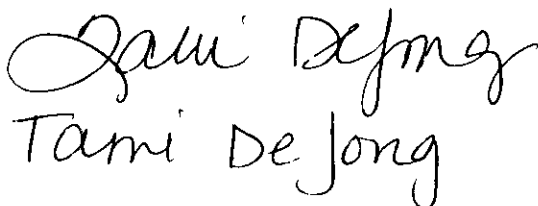 Tami DeJong
Tami DeJong